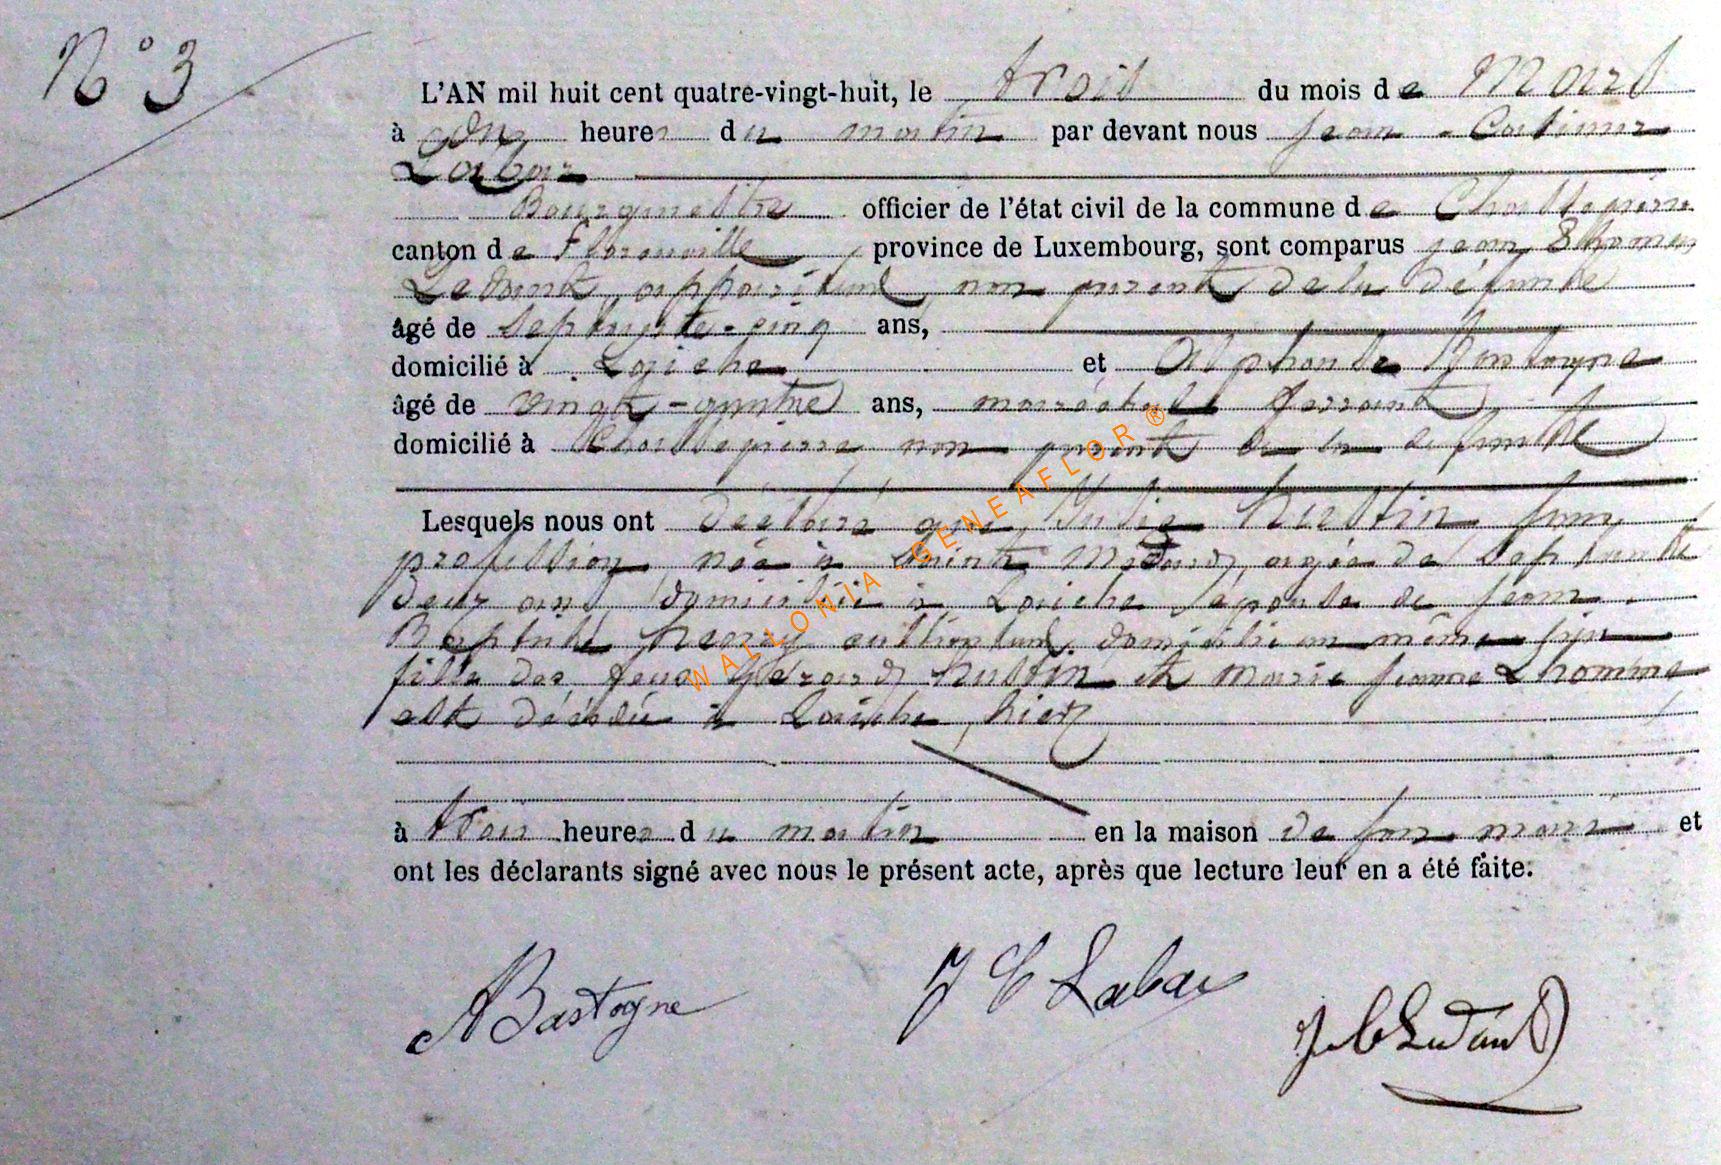 N° 3
L'AN mil huit cent quatre-vingt-huit, le trois du mois de Mars
à onze heures du matin par devant nous jean - Catimir
Labar
Bourgmestre officier de l'état civil de la commune de Chassepierre
canton de Florenville province de Luxembourg, sont comparus jean
Ledant, appariteur, non parent de la défunte
âgé de septante-cinq ans,
domicilié à Laiche et Alphonse Bastogne
âgé de vingt-quatre ans, maréchal ferrant
domicilié à Chassepierre non parent de la défunte
Lesquels nous ont déclaré que Hustin, sans
profession, née à Saint Médard, agée de septante
deux ans, domiciliée à Laiche épouse de jean
Baptiste Henry cultivateur, domicilié au même lieu
fille des feus Gérard Hustin et Marie jeanne Lhomme
est décédée à Laiche, hier
à trois heures du matin en la maison de son mari et
ont les déclarants signé avec nous le présent acte, après que lecture leur en a été faite.
ABastogne
J C Labar
Ledant
WALLONIA - GENEAFLOR ®